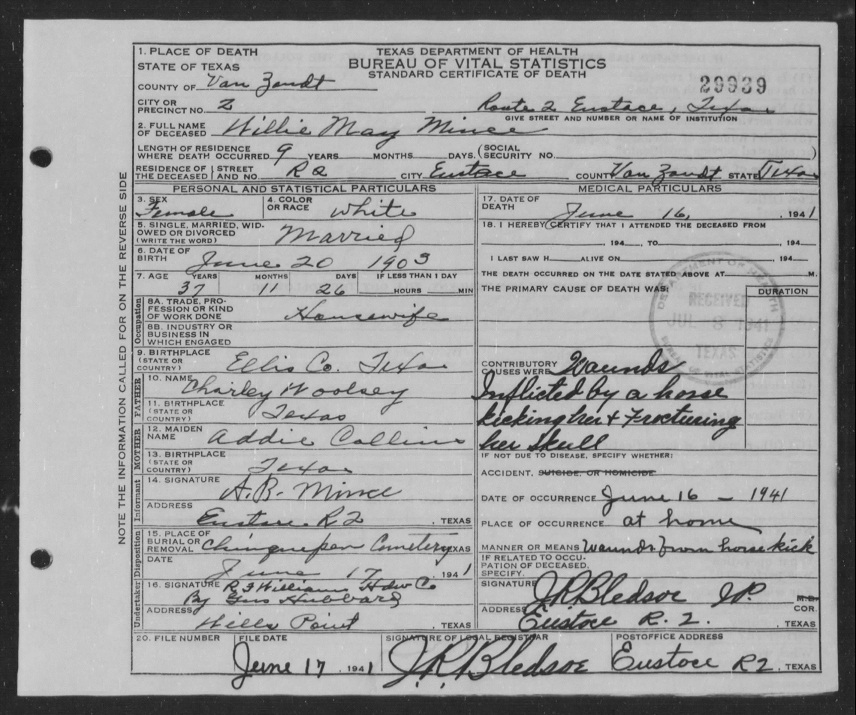 NOTE THE INFORMATION CALLED FOR ON THE REVERSE SIDE
1. PLACE OF DEATH
STATE OF TEXAS
TEXAS DEPARTMENT OF HEALTH
BUREAU OF VITAL STATISTICS
STANDARD CERTIFICATE OF DEATH
29939
COUNTY OF Van Zandt
CITY OR PRECINCT NO. 2 Route 2 Eustace, Texas
GIVE STREET AND NUMBER OR NAME OF INSTITUTION
2. FULL NAME OF DECEASED Willie May Mince
LENGTH OF RESIDENCE WHERE DEATH OCCURRED 9 YEARS MONTHS DAYS. (SOCIAL SECURITY NO. )
RESIDENCE OF THE DECEASED { STREET AND NO. R2 CITY Eustace COUNTY Van Zandt STATE Texas
PERSONAL AND STATISTICAL PARTICULARS
3. SEX Female
4. COLOR OR RACE White
5. SINGLE, MARRIED, WIDOWED OR DIVORCED (WRITE THE WORD) Married
6. DATE OF BIRTH June 20 1903
7. AGE YEARS MONTHS DAYS IF LESS THAN 1 DAY
37 11 26 HOURS MIN
Occupation
8A. TRADE, PROFESSION OR KIND OF WORK DONE Housewife
8B. INDUSTRY OR BUSINESS IN WHICH ENGAGED
9. BIRTHPLACE (STATE OR COUNTRY) Ellis Co. Texas
FATHER
10. NAME Charley Woolsey
11. BIRTHPLACE (STATE OR COUNTRY) Texas
MOTHER
12. MAIDEN NAME Addie Collins
13. BIRTHPLACE (STATE OR COUNTRY) Texas
Informant
14. SIGNATURE A.B. Mince
ADDRESS Eustace R2, TEXAS
Disposition
15. PLACE OF BURIAL OR REMOVAL Chinquepen Cemetery TEXAS
DATE June 17, 1941
Undertaker
16. SIGNATURE R J William Hdw Co
By Gus Hubbard
ADDRESS Wills Point, TEXAS
MEDICAL PARTICULARS
17. DATE OF DEATH June 16, 1941
18. I HEREBY CERTIFY THAT I ATTENDED THE DECEASED FROM
, 194 , TO , 194
I LAST SAW H ALIVE ON , 194
THE DEATH OCCURRED ON THE DATE STATED ABOVE AT M.
THE PRIMARY CAUSE OF DEATH WAS: DURATION
DEPARTMENT OF HEALTH
RECEIVED
JUL 8 1941
TEXAS
BUREAU OF VITAL STATISTICS
CONTRIBUTORY CAUSES WERE Waunds
Inflicted by a horse
kicking her & Frocturing
her skull
IF NOT DUE TO DISEASE, SPECIFY WHETHER:
ACCIDENT, SUICIDE, OR HOMICIDE
DATE OF OCCURRENCE June 16 - 1941
PLACE OF OCCURRENCE at home
MANNER OR MEANS Waunds from horse kick
IF RELATED TO OCCUPATION OF DECEASED, SPECIFY.
SIGNATURE J R Bledsoe J P. M.D. COR.
ADDRESS Eustace R. 2., TEXAS
20. FILE NUMBER
FILE DATE June 17, 1941
SIGNATURE OF LOCAL REGISTRAR J. R. Bledsoe
POSTOFFICE ADDRESS Eustace R2, TEXAS